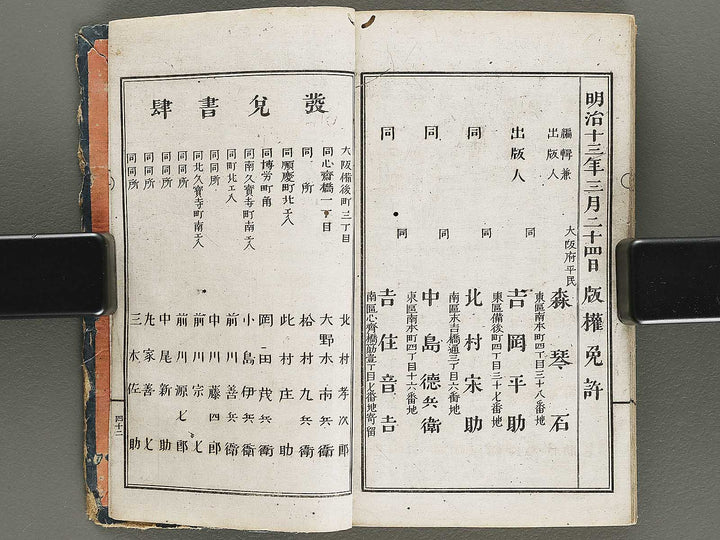 明治十三年三月二十四日 版權免許
編輯兼
出版人 大阪府平民 森琴石
東區南本町四丁目三十八番地
出版人 同 吉岡平助
東區備後町四丁目三十七番地
同 同 北村宋助
南區末吉橋通三丁目六番地
同 同 中島德兵衛
東區南本町四丁目十六番地
同 同 吉住音吉
南區心齋橋筋壹丁目七番地寄留
發兌書肆
大阪備後町三丁目 北村孝次郎
同心齋橋一丁目 大野木市兵衛
同所 松村九兵衛
同順慶町北エ入 此村庄助
同博労町角 岡田茂兵衛
同南久寶寺町南エ入 小島伊兵衛
同町北エ入 前川善兵衛
同同所 中川藤四郎
同北久寶寺町南エ入 前川宗七
同同所 前川源七郎
同同所 中尾新助
同同所 九家善七
同同所 三木佐助
四十二